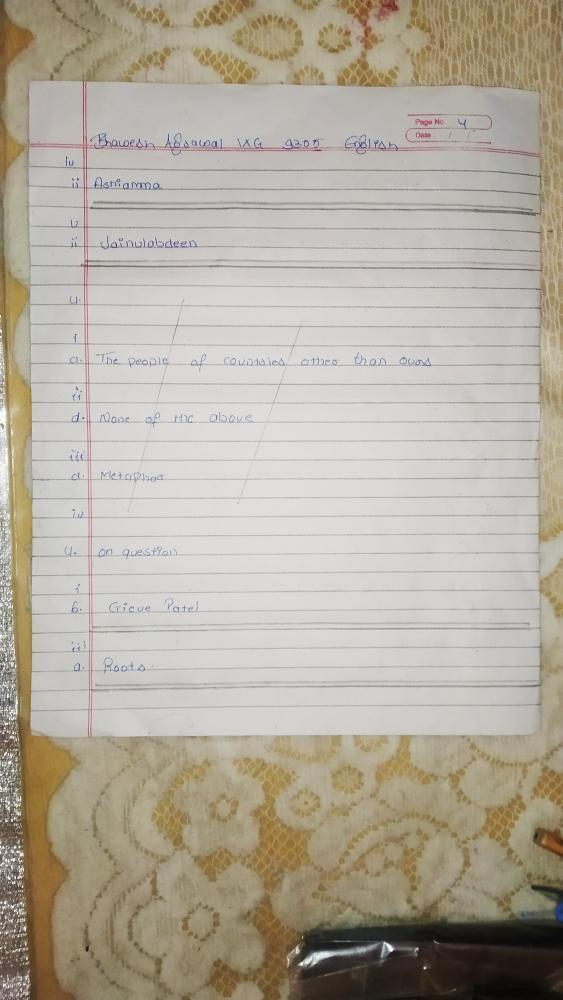 Page No. 4
Date / /
Bhavesh Agrawal IXG 9305 English
iv
ii Ashiamma
v
ii Jainulabdeen
4.
i
a. The people of countries other than ours
ii
d. None of the above
iii
a. Metaphor
iv
4. on question
i
b. Gieve Patel
ii)
a. Roots.